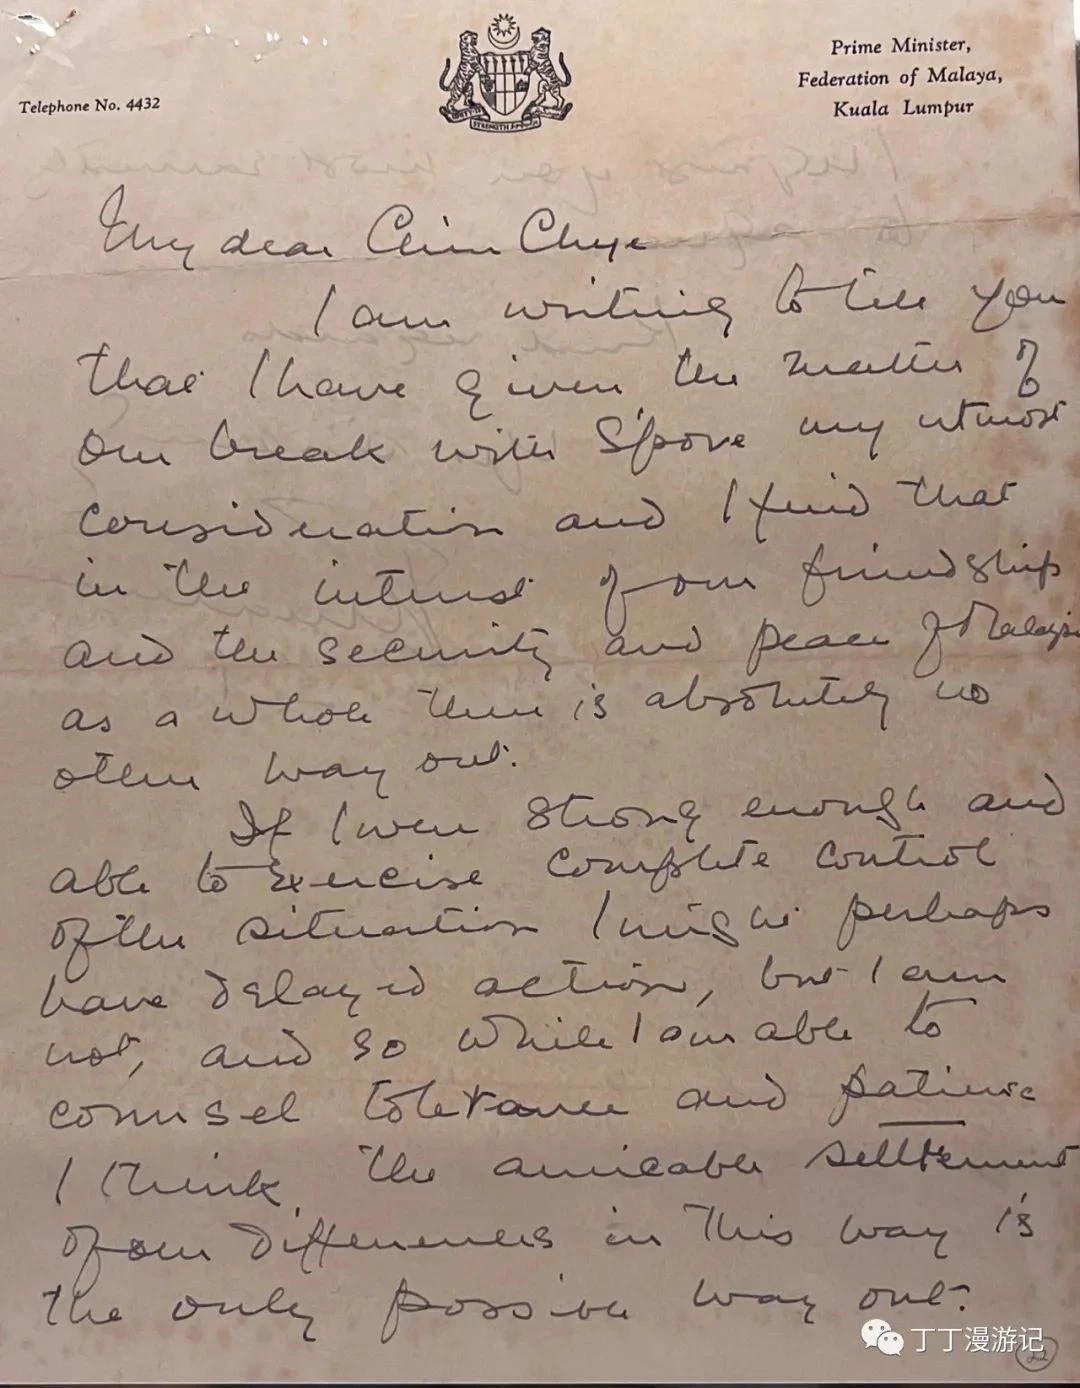 Prime Minister,
Federation of Malaya,
Kuala Lumpur
Telephone No. 4432
My dear Chin Chye
I am writing to tell you
that I have given the matter of
our break with S'pore my utmost
consideration and I find that
in the interest of our friendship
and the security and peace of Malaysia
as a whole there is absolutely no
other way out.
If I were strong enough and
able to exercise complete control
of the situation I might perhaps
have delayed action, but I am
not, and so while I am able to
counsel tolerance and patience
I think the amicable settlement
of our differences in this way is
the only possible way out.
丁丁漫游记
22